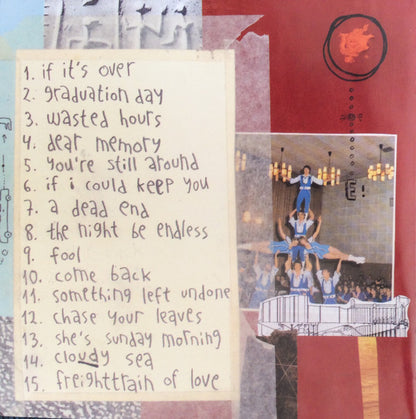 1. if it's over
2. graduation day
3. wasted hours
4. dear memory
5. you're still around
6. if i could keep you
7. a dead end
8. the night be endless
9. fool
10. come back
11. something left undone
12. chase your leaves
13. she's sunday morning
14. cloudy sea
15. freighttrain of love